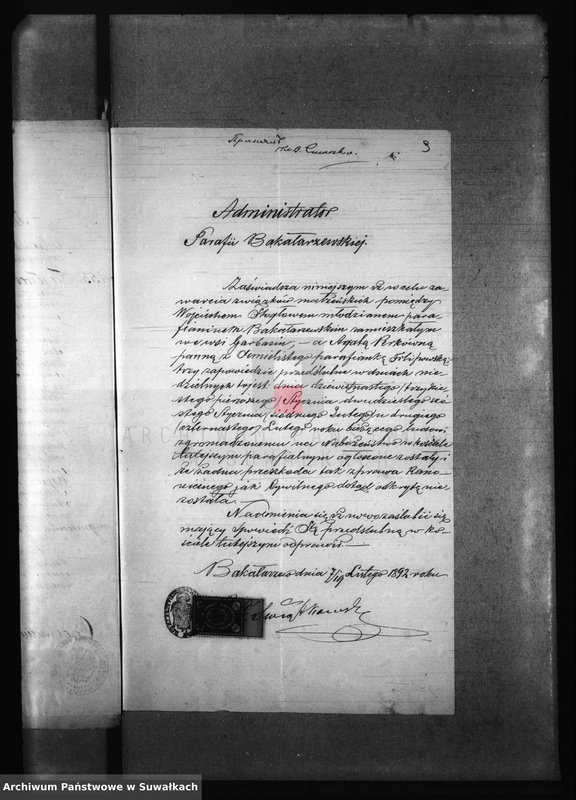 3
Administrator
Parafii Bakałarzewskiej.
Zaświadcza niniejszym iż w celu za
warcia związków małżeńskich pomiędzy
Wojciechem młodzianem para
fianinem Bakałarzewskim zamieszkałym
we wsi Garbasiu; — a Agatą
panną z parafianką Filipowską
trzy zapowiedzie przedślubne w dniach nie
dzielnych to jest dnia dziewiętnastego / trzydzie
stego pierwszego / Stycznia dwudziestego szó
stego Stycznia / siódmego Lutego / i drugiego
/ czternastego / Lutego roku bieżącego ludowi
zgromadzonemu na Nabożeństwo w kościele
tutejszym parafialnym ogłoszone zostały i
że żadna przeszkoda tak z prawa Kano
nicznego jak Cywilnego dotąd odkrytą nie
została.
Nadmienia się iż nowo zaślubić się
mający Spowiedź Stą przedślubną w ko
ściele tutejszym odprawił —
Bakałarzewo dnia 7/19 Lutego 1892 roku
Archiwum Państwowe w Suwałkach